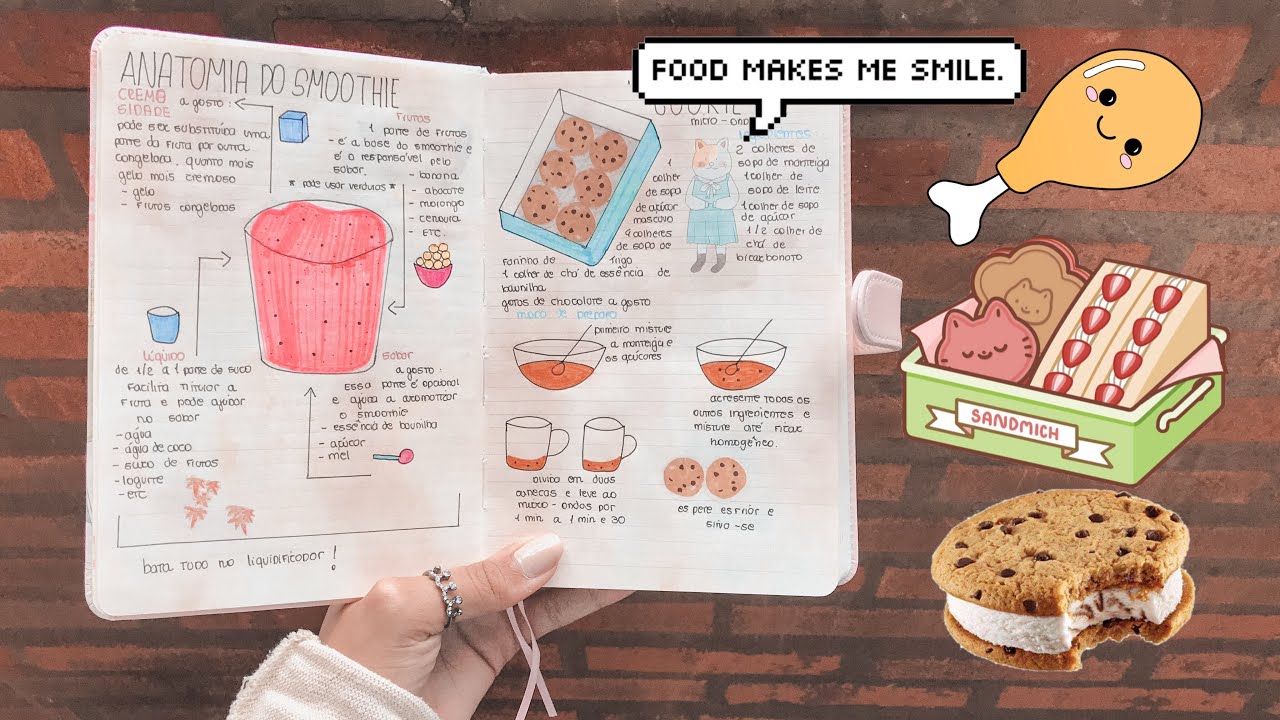 ANATOMIA DO SMOOTHIE
CREMO
SIDADE
a gosto:
pode ser substituída uma
parte da fruta por outra
congelada. quanto mais
gelo mais cremoso
- gelo
- frutas congeladas
frutas
1 parte de frutas
- é a base do smoothie e
é o responsável pelo
sabor.
* pode usar verduras *
- banana
- abacate
- morango
- cenoura
- etc.
líquido
de 1/2 a 1 parte de suco
facilita triturar a
fruta e pode ajudar
no sabor
- água
- água de coco
- suco de frutas
- iogurte
- etc
sabor
a gosto:
essa parte é opcional
e ajuda a aromatizar
o smoothie
- essência de baunilha
- açúcar
- mel
bata tudo no liquidificador!
FOOD MAKES ME SMILE.
COOKIE
micro-ond
2 colheres de
sopa de manteiga
1 colher de
sopa de leite
1 colher de sopa
de açúcar
1/2 colher de
chá de
bicarbonato
1
colher
de sopa
de açúcar
mascavo
4 colheres
de sopa de
farinha de trigo
1 colher de chá de essência de
baunilha
gotas de chocolate a gosto
modo de preparo
primeiro misture
a manteiga e
os açúcares
acresente todos os
outros ingredientes e
misture até ficar
homogêneo.
divida em duas
canecas e leve ao
micro-ondas por
1 min a 1 min e 30
espere esfriar e
sirva-se
SANDMICH